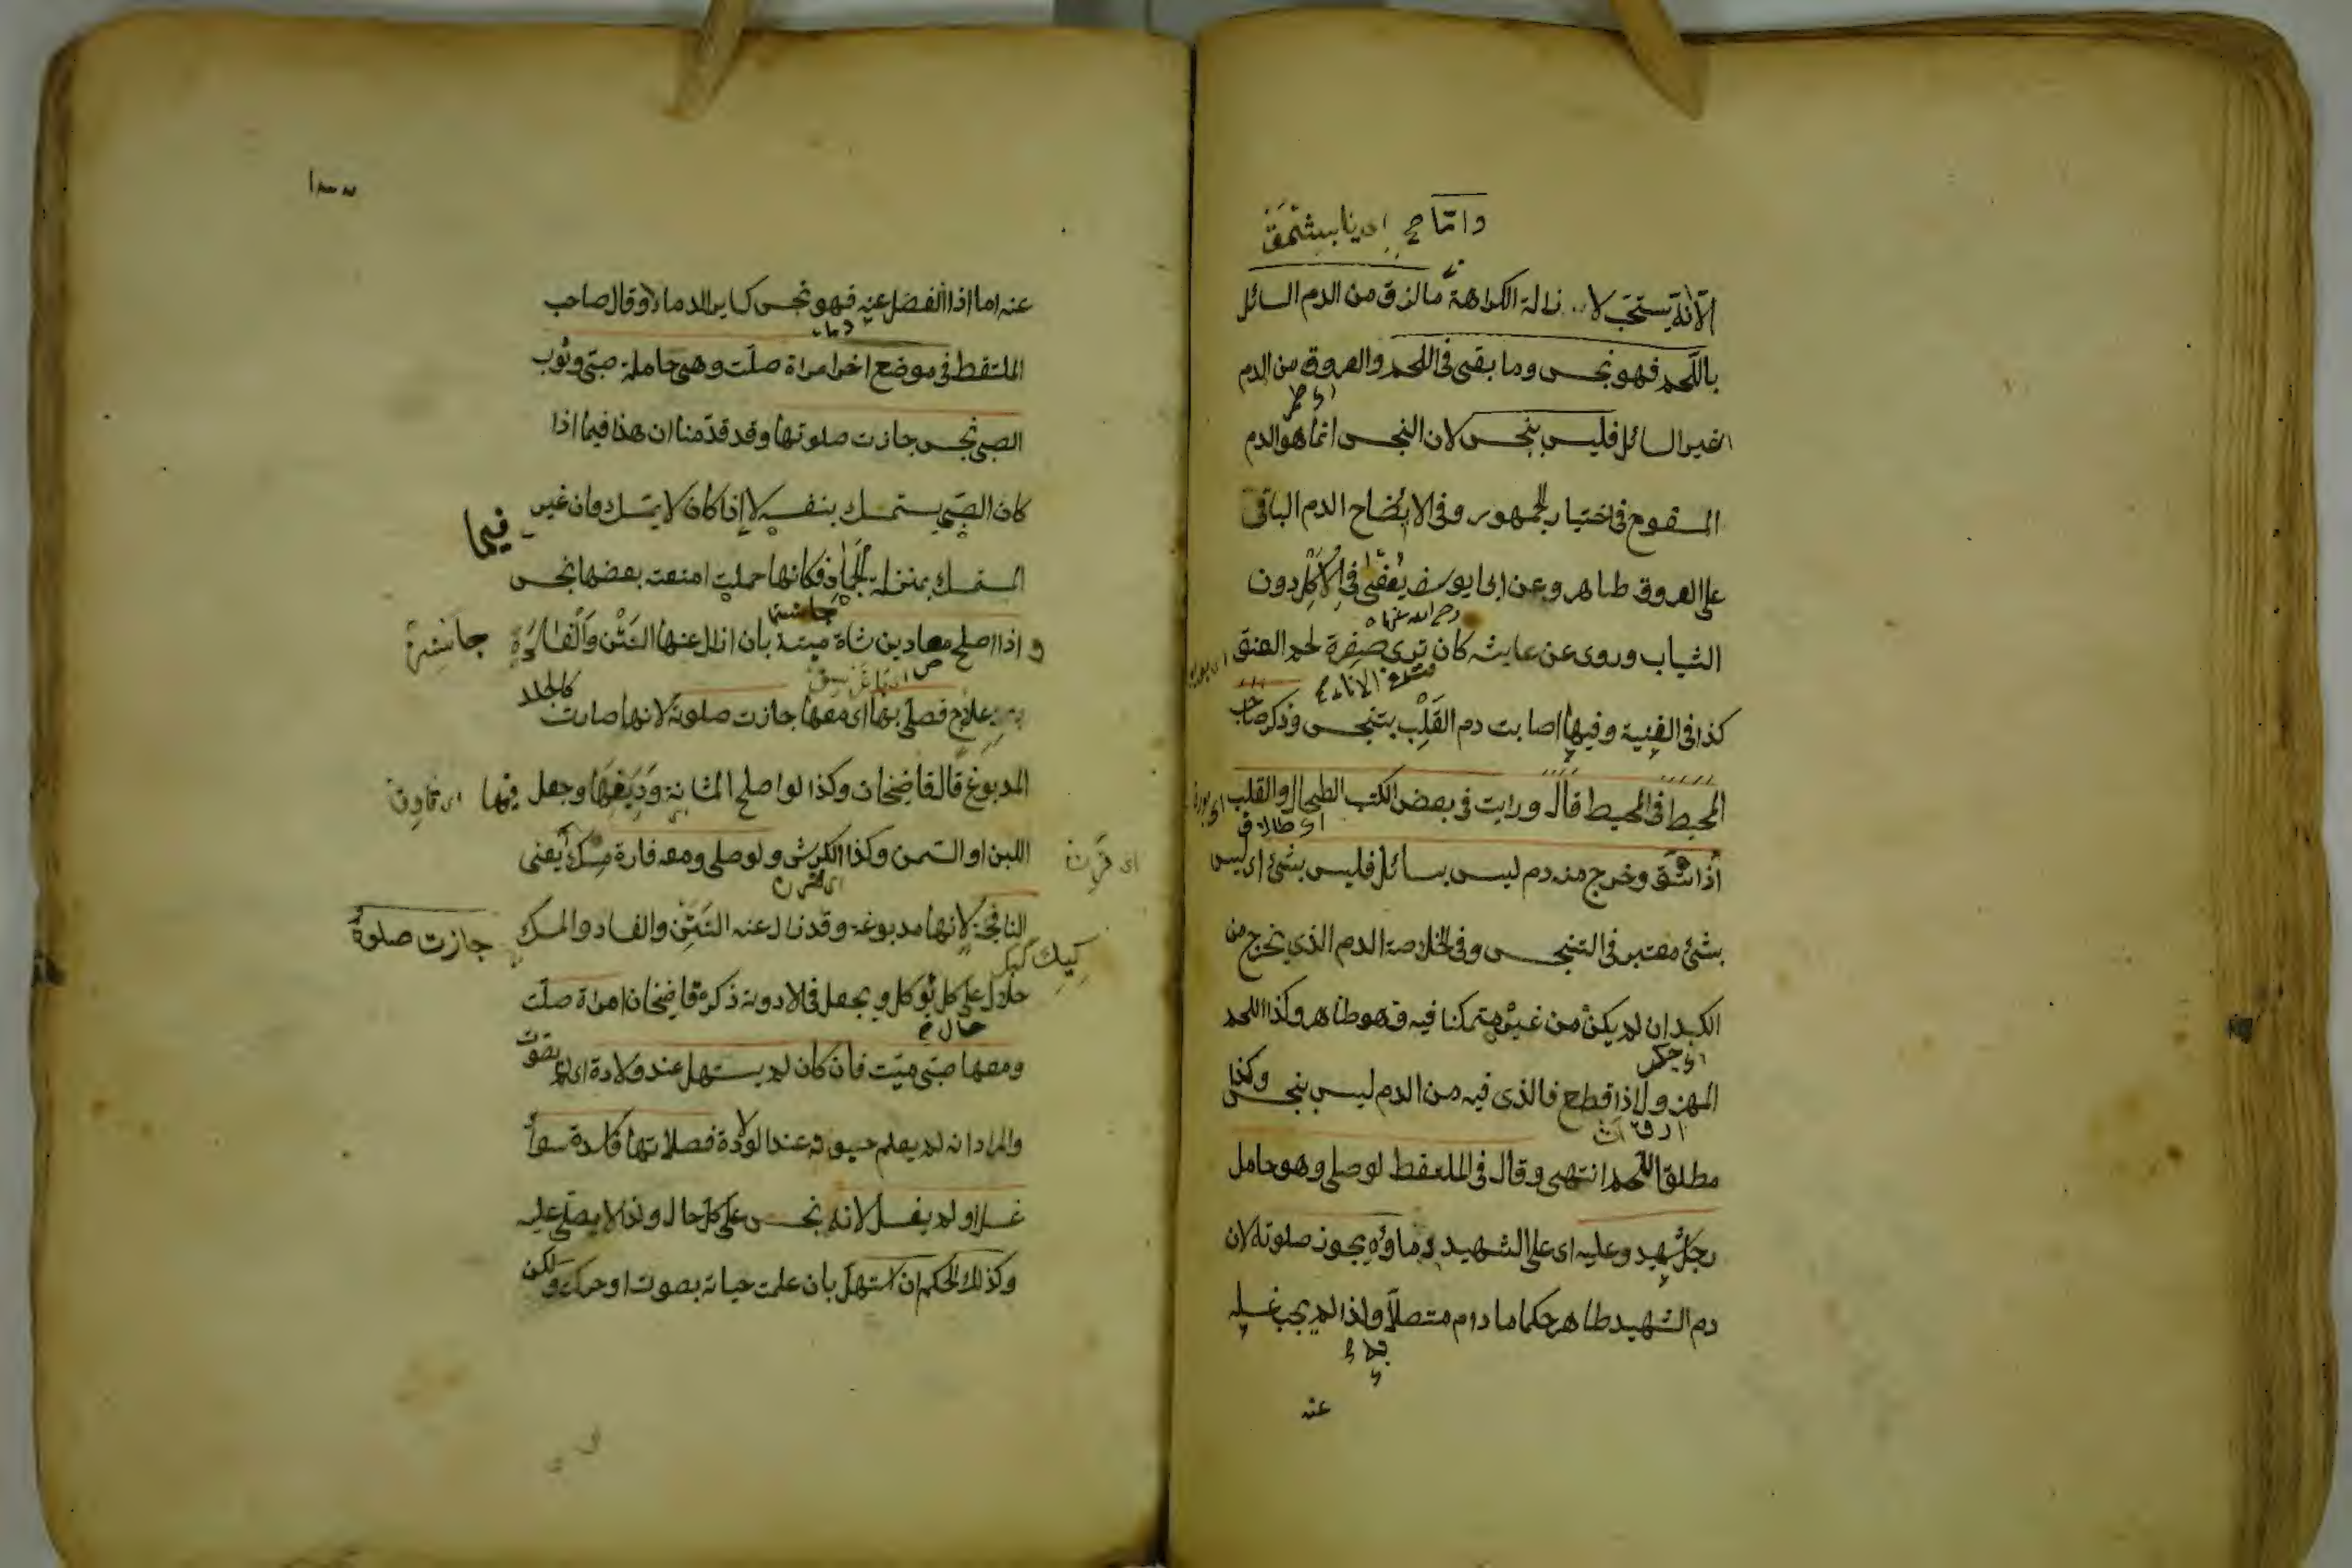 الا انه يستحب لازالة الكراهة ما لزق من الدم السائل
باللحم فهو نجس وما بقى فى اللحم والعروق من الدم
الغير السائل فليس بنجس لان النجس انما هو الدم
المسفوح فى اختيار الجمهور وفى الايضاح الدم الباقى
على العروق طاهر وعن ابى يوسف يعفى فى الاكل دون
الثياب وروى عن عايشه كان ترى صفرة لحم العنق
رضى الله عنها
كذا فى القنية وفيها اصابت دم القلب يتنجس وذكر صاحب
المحيط فى المحيط قال ورايت فى بعض الكتب الطحال والقلب
اى طلاق
اذا شق وخرج منه دم ليس بسائل فليس بشئ اى ليس
بشئ معتبر فى التنجس وفى الخلاصة الدم الذى يخرج من
الكبد ان لم يكن من غيره متمكنا فيه فهو طاهر وكذا اللحم
اى جكر
المهزول اذا قطع فالذى فيه من الدم ليس بنجس وكذا
مطلق اللحم انتهى وقال فى الملتقط لو صلى وهو حامل
رجل شهيد وعليه اى على الشهيد دماؤه يجوز صلوته لان
دم الشهيد طاهر حكما ما دام متصلا ولذا لم يجب غسله
عنه
عنه اما اذا انفصل عنه فهو نجس كساير الدماء وقال صاحب
الملتقط فى موضع اخر امراة صلت وهى حاملة صبى وثوب
الصبى نجس جازت صلوتها وقد قدمنا ان هذا فيما اذا
كان الصبى يستمسك بنفسه لا اذا كان لا يتمسك فان غير
فيما
المستمسك بمنزلة الجماد فكانها حملت امتعة بعضها نجس
و اذا اصلح مصارين شاة ميتة بان ازال عنها النتن والفساد
بعلاج فصلى بها اى معها جازت صلوته لانها صارت كالجلد
المدبوغ قال قاضيخان وكذا لو اصلح المثانة ودبغها وجعل فيها
اللبن او السمن وكذا الكرش ولو صلى ومعه فارة مسك يعنى
النافجة لانها مدبوغة وقد زال عنه النتن والفساد والمسك
جازت صلوة
حلال على كل يؤكل ويجعل فى الادوية ذكره قاضيخان امراة صلت
ومعها صبى ميت فان كان لم يستهل عند ولادة اى لم يصوت
والمراد انه لم يعلم حيوته عند الولادة فصلاتها فاسدة سواء
غسل او لم يغسل لانه نجس على كل حال ولذا لا يصلى عليه
وكذلك الحكم ان استهل بان علمت حياته بصوت او حركة ولكن